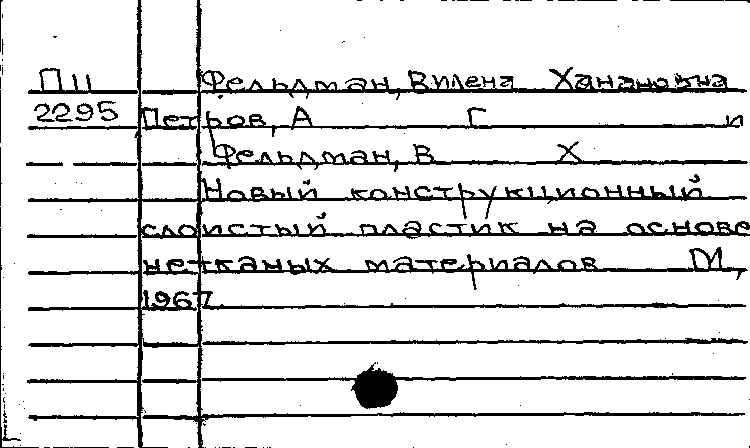 П11 Фельдман, Вилена Ханановна
2295 Петров, А Г и
Фельдман, В Х
Новый конструкционный
слоистый пластик на основе
нетканых материалов М,
1967